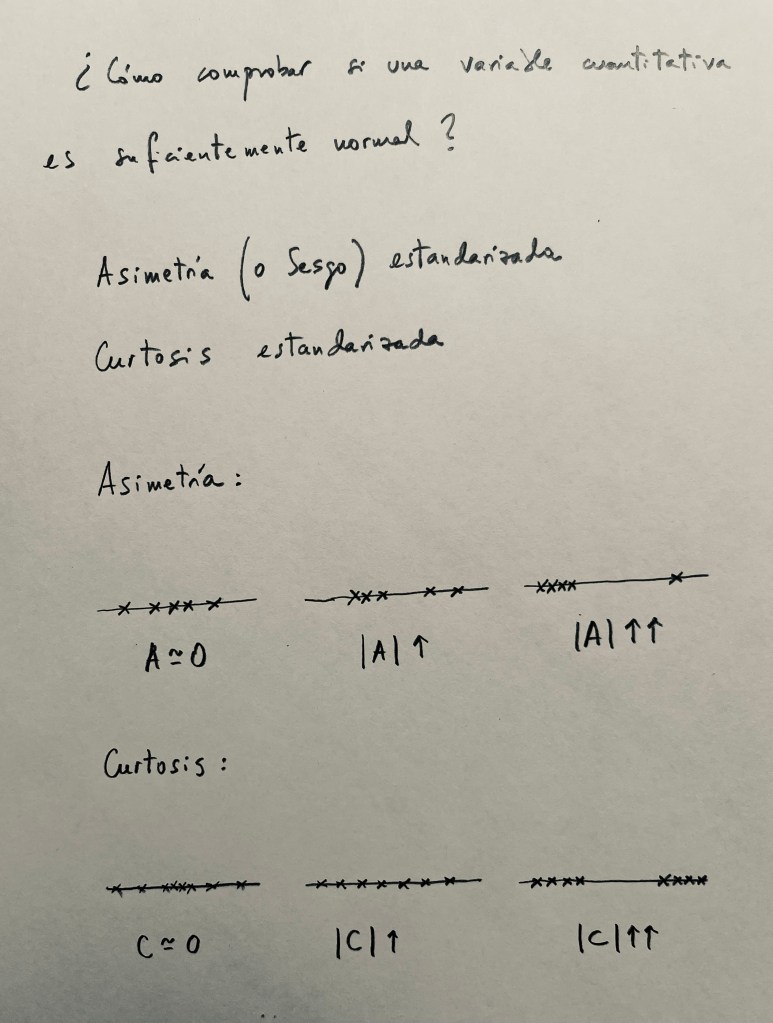 ¿Cómo comprobar si una variable cuantitativa
es suficientemente normal?
Asimetría (o Sesgo) estandarizada
Curtosis estandarizada
Asimetría:
A ≃ 0 |A| ↑ |A| ↑↑
Curtosis:
C ≃ 0 |C| ↑ |C| ↑↑